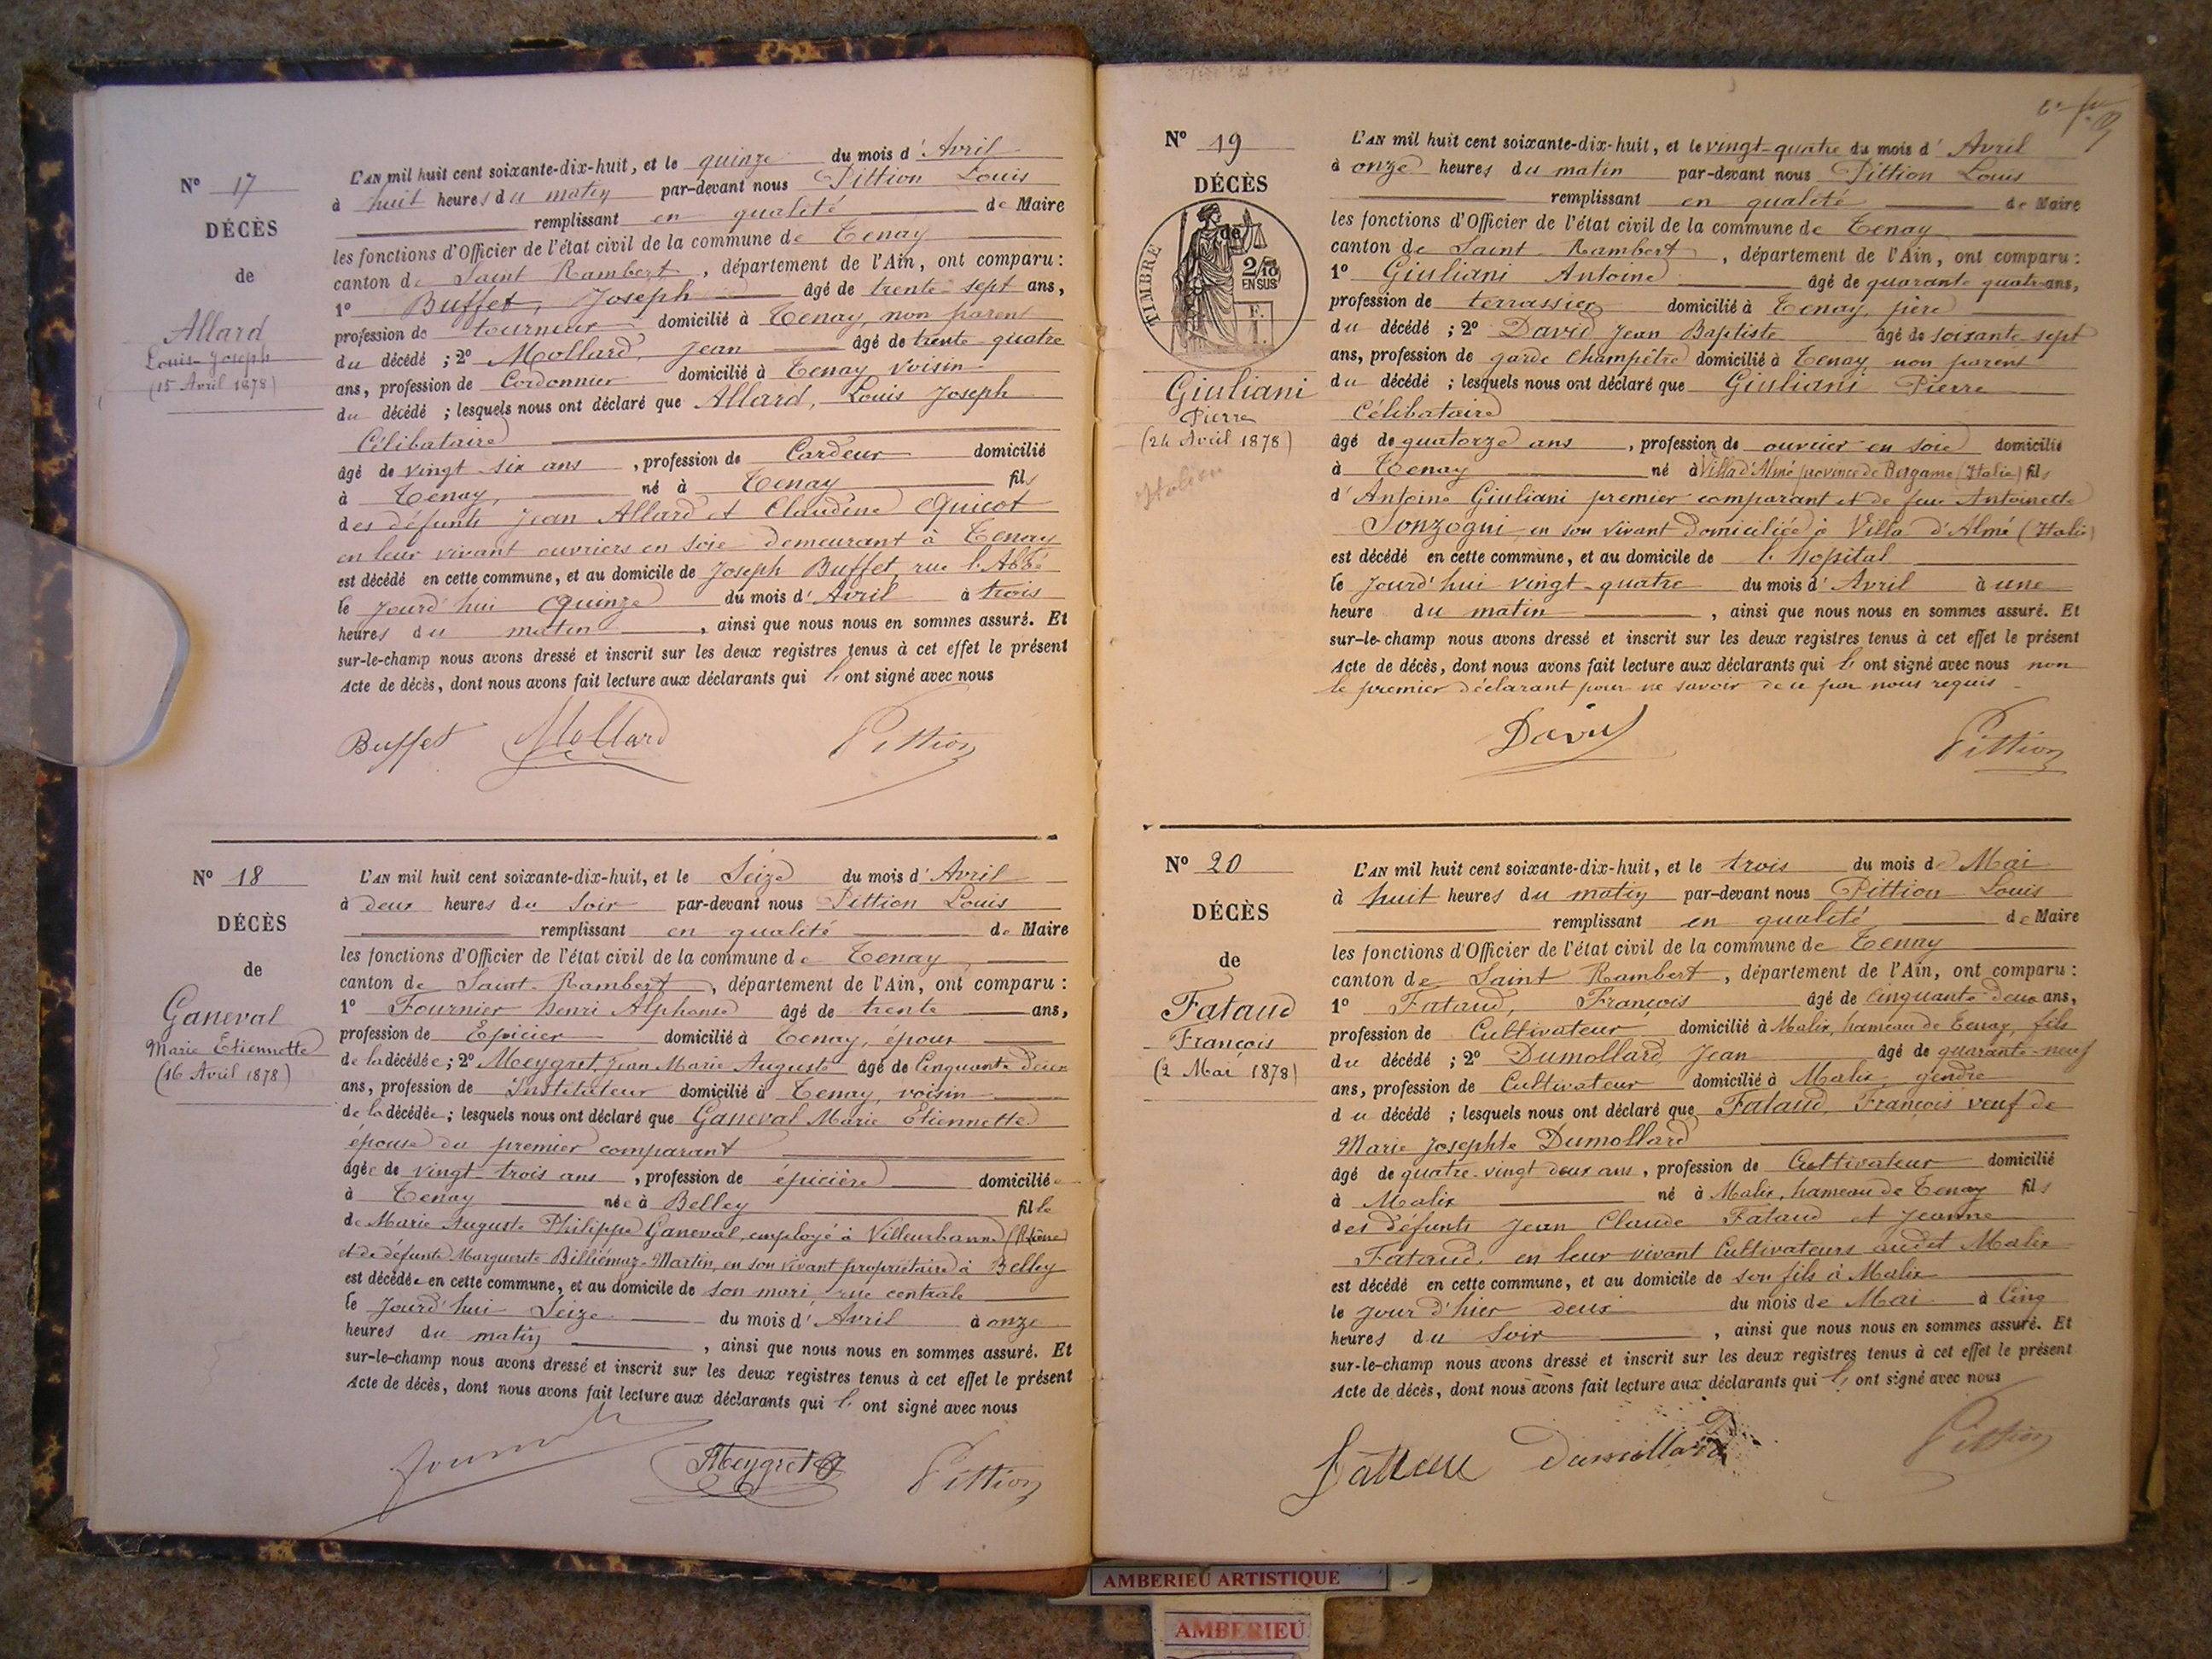 N° 17
DÉCÈS
de
Allard
Louis-Joseph
(15 Avril 1878)
L'AN mil huit cent soixante-dix-huit, et le quinze du mois d'Avril
à huit heures du matin par-devant nous Pittion Louis
remplissant en qualité de Maire
les fonctions d'Officier de l'état civil de la commune de Tenay
canton de Saint Rambert, département de l'Ain, ont comparu :
1° Buffet, Joseph âgé de trente-sept ans,
profession de tourneur domicilié à Tenay, non parent
du décédé ; 2° Mollard, Jean âgé de trente quatre
ans, profession de Cordonnier domicilié à Tenay voisin
du décédé ; lesquels nous ont déclaré que Allard, Louis Joseph
Célibataire
âgé de vingt six ans, profession de Cardeur domicilié
à Tenay, né à Tenay fils
des défunts Jean Allard et Claudine Quicot
en leur vivant ouvriers en soie demeurant à Tenay
est décédé en cette commune, et au domicile de Joseph Buffet, rue l'Abbé
le jourd'hui Quinze du mois d'Avril à trois
heures du matin, ainsi que nous nous en sommes assuré. Et
sur-le-champ nous avons dressé et inscrit sur les deux registres tenus à cet effet le présent
Acte de décès, dont nous avons fait lecture aux déclarants qui l' ont signé avec nous
Buffet Mollard Pittion
N° 18
DÉCÈS
de
Ganeval
Marie Etiennette
(16 Avril 1878)
L'AN mil huit cent soixante-dix-huit, et le Seize du mois d'Avril
à deux heures du soir par-devant nous Pittion Louis
remplissant en qualité de Maire
les fonctions d'Officier de l'état civil de la commune de Tenay
canton de Saint-Rambert, département de l'Ain, ont comparu :
1° Fournier Henri Alphonse âgé de trente ans,
profession de Epicier domicilié à Tenay, époux
de la décédée ; 2° Meygret, Jean Marie Auguste âgé de Cinquante deux
ans, profession de Instituteur domicilié à Tenay, voisin
de la décédée ; lesquels nous ont déclaré que Ganeval Marie Etiennette
épouse du premier comparant
âgée de vingt-trois ans, profession de épicière domiciliée
à Tenay née à Belley fille
de Marie Auguste Philippe Ganeval, employé à Villeurbanne (Rhône)
et de défunte Marguerite Billiémaz-Martin, en son vivant propriétaire à Belley
est décédée en cette commune, et au domicile de son mari rue centrale
le jourd'hui Seize du mois d'Avril à onze
heures du matin, ainsi que nous nous en sommes assuré. Et
sur-le-champ nous avons dressé et inscrit sur les deux registres tenus à cet effet le présent
Acte de décès, dont nous avons fait lecture aux déclarants qui l' ont signé avec nous
Meygret Pittion
N° 19
DÉCÈS
de
TIMBRE
2/10
EN SUS
F.
1
Giuliani
Pierre
(24 Avril 1878)
Italien
L'AN mil huit cent soixante-dix-huit, et le vingt-quatre du mois d'Avril
à onze heures du matin par-devant nous Pittion Louis
remplissant en qualité de Maire
les fonctions d'Officier de l'état civil de la commune de Tenay
canton de Saint-Rambert, département de l'Ain, ont comparu :
1° Giuliani Antoine âgé de quarante quatre ans,
profession de terrassier domicilié à Tenay, père
du décédé ; 2° David Jean Baptiste âgé de soixante-sept
ans, profession de garde Champêtre domicilié à Tenay non parent
du décédé ; lesquels nous ont déclaré que Giuliani Pierre
Célibataire
âgé de quatorze ans, profession de ouvrier en soie domicilié
à Tenay né à Villa d'Almé (province de Bergame (Italie) fils
d'Antoine Giuliani premier comparant et de feue Antoinette
Sonzogni, en son vivant domiciliée à Villa d'Almé (Italie)
est décédé en cette commune, et au domicile de l'hôpital
le jourd'hui vingt-quatre du mois d'Avril à une
heure du matin, ainsi que nous nous en sommes assuré. Et
sur-le-champ nous avons dressé et inscrit sur les deux registres tenus à cet effet le présent
Acte de décès, dont nous avons fait lecture aux déclarants qui l' ont signé avec nous non
le premier déclarant pour ne savoir de ce par nous requis
David Pittion
N° 20
DÉCÈS
de
Fataud
François
(2 Mai 1878)
L'AN mil huit cent soixante-dix-huit, et le trois du mois de Mai
à huit heures du matin par-devant nous Pittion Louis
remplissant en qualité de Maire
les fonctions d'Officier de l'état civil de la commune de Tenay
canton de Saint Rambert, département de l'Ain, ont comparu :
1° Fataud, François âgé de Cinquante deux ans,
profession de Cultivateur domicilié à Malix, hameau de Tenay, fils
du décédé ; 2° Dumollard Jean âgé de quarante-neuf
ans, profession de Cultivateur domicilié à Malix, gendre
du décédé ; lesquels nous ont déclaré que Fataud, François veuf de
Marie Josephte Dumollard
âgé de quatre-vingt deux ans, profession de Cultivateur domicilié
à Malix né à Malix, hameau de Tenay fils
des défunts Jean Claude Fataud et Jeanne
Fataud, en leur vivant Cultivateurs audit Malix
est décédé en cette commune, et au domicile de son fils à Malix
le jour d'hier deux du mois de Mai à Cinq
heures du soir, ainsi que nous nous en sommes assuré. Et
sur-le-champ nous avons dressé et inscrit sur les deux registres tenus à cet effet le présent
Acte de décès, dont nous avons fait lecture aux déclarants qui l' ont signé avec nous
Dumollard Pittion
AMBERIEU ARTISTIQUE
AMBERIEU